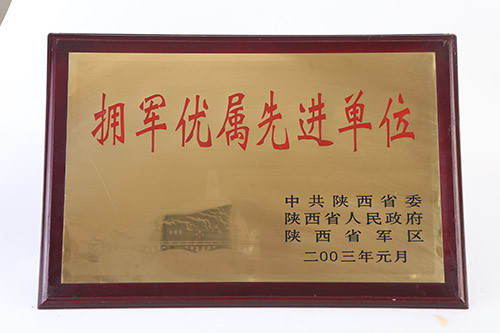 拥军优属先进单位
中共陕西省委
陕西省人民政府
陕西省军区
二00三年元月